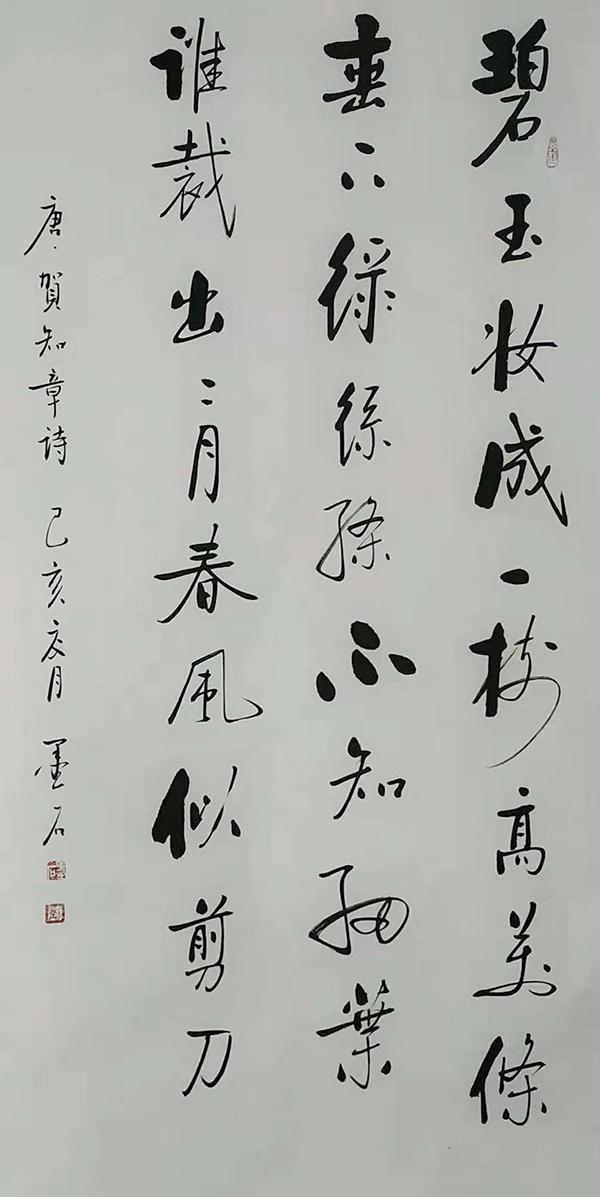 碧玉妆成一樹高萬條
垂下緑絲縧不知細葉
誰裁出二月春風似剪刀
唐賀知章詩 己亥月 墨石